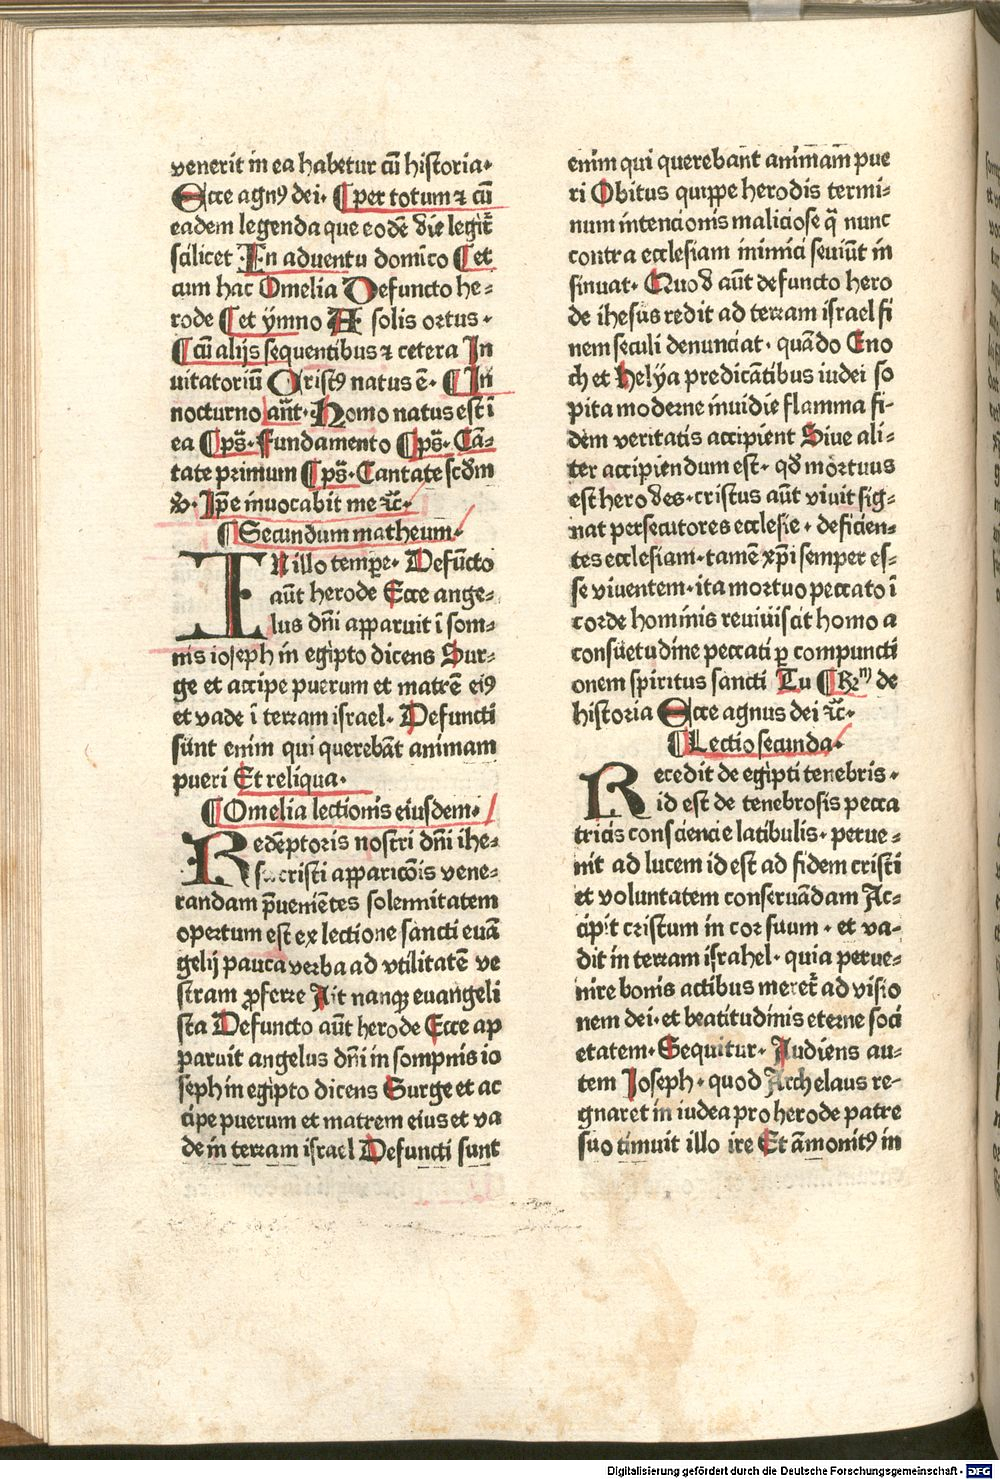 venerit in ea habetur cū historia·
Ecce agnꝰ dei· ¶per totum ⁊ cū
eadem legenda que eodē die legit᷑
scilicet In aduentu domīco ¶et
cum hac Omelia Defuncto he⸗
rode ¶et ymno A solis ortus·
¶cū alijs sequentibus ⁊ cetera In
uitatoriū Cristꝰ natus ē· ¶In
nocturno an̄t· Homo natus est ī
ea ¶ps̄· Fundamento ¶ps̄· Cā⸗
tate primum ¶ps̄· Cantate scd̄m
Ipē inuocabit me ⁊c̄·
¶Secundum matheum·
IN illo tempe· Defūcto
aūt herode Ecce ange⸗
lus dn̄i apparuit ī som⸗
nis ioseph in egipto dicens Sur⸗
ge et accipe puerum et matrē eiꝰ
et vade ī terram israel· Defuncti
sunt enim qui querebāt animam
pueri Et reliqua·
¶Omelia lectionis eiusdem·
Redēptoris nostri dn̄i ihe⸗
su cristi apparicōis vene⸗
randam p̄ueniētes solennitatem
opertum est ex lectione sancti euā
gelij pauca verba ad vtilitatē ve
stram ꝓferre Ait nanqꝫ euangeli
sta Defuncto aūt herode Ecce ap
paruit angelus dn̄i in sompnis io
seph in egipto dicens Surge et ac
cipe puerum et matrem eius et va
de in terram israel Defuncti sunt
enim qui querebant animam pue
ri Obitus quippe herodis termi⸗
num intencionis maliciose q̄ nunc
contra ecclesiam inimici seuiūt in
sinuat· Quod aūt defuncto hero
de ihesus redit ad terram israel fi
nem seculi denunciat· quādo Eno
ch et Helya predicātibus iudei so
pita moderne inuidie flamma fi⸗
dem veritatis accipient Siue ali⸗
ter accipiendum est· qd̄ mortuus
est herodes· cristus aūt viuit sig⸗
nat persecutores ecclesie· deficien⸗
tes ecclesiam· tamē xp̄i semper es⸗
se viuentem· ita mortuo peccato ī
corde hominis reuiuiscit homo a
consuetudine peccati ꝑ compuncti
onem spiritus sancti Tu ¶Rm̄ de
historia Ecce agnus dei ⁊c̄·
¶Lectio secunda·
Recedit de egipti tenebris·
id est de tenebrosis pecca
tricis consciencie latibulis· perue⸗
nit ad lucem id est ad fidem cristi
et voluntatem conseruādam Ac⸗
cipit cristum in cor suum· et va⸗
dit in terram israhel· quia perue⸗
nire bonis actibus meret᷑ ad visio
nem dei· et beatitudinis eterne soci
etatem· Sequitur· Audiens au⸗
tem Joseph· quod Archelaus re⸗
gnaret in iudea pro herode patre
suo timuit illo ire Et āmonitꝰ in
Digitalisierung gefördert durch die Deutsche Forschungsgemeinschaft - DFG